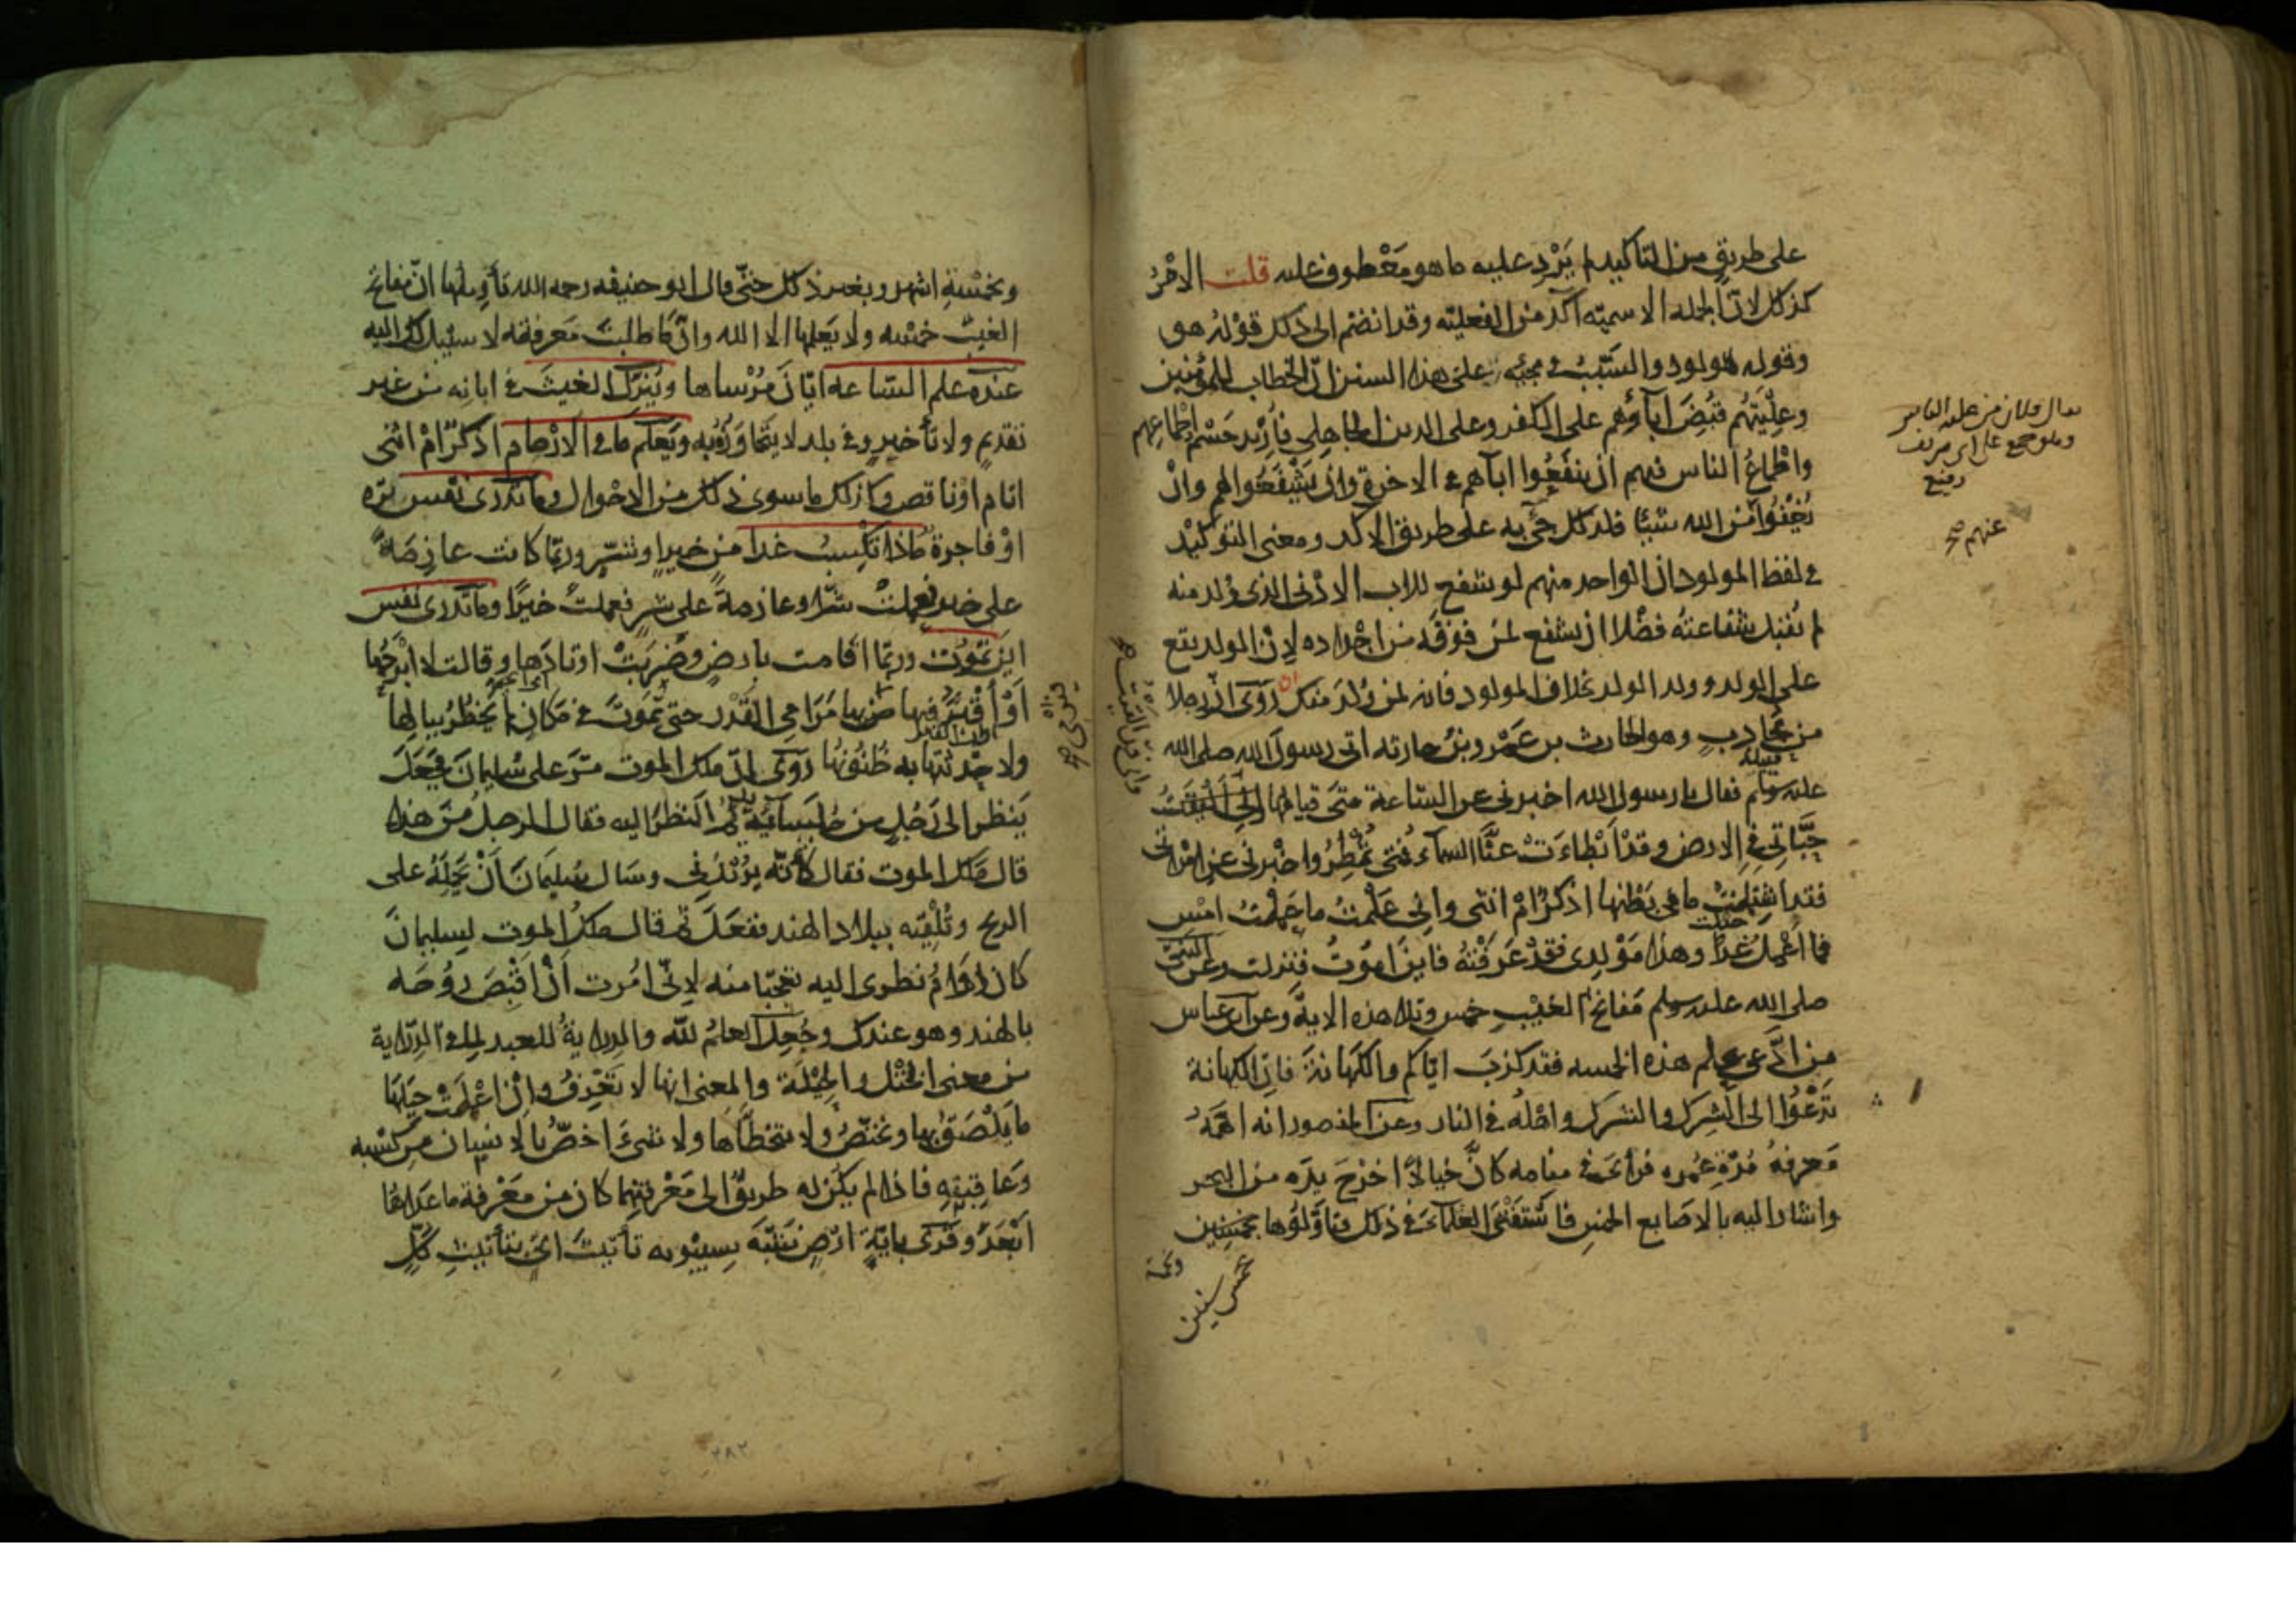 على طريق من التاكيد لم يَرِد عليه ما هو مَعْطوف عليه قلت الامْرُ
كذلك لانّ الجمله الاسميّه آكد من الفعليّه وقد انضم الى ذلك قوْلهُ هو
وقوله مولود والسَّبَبُ في مجيّه على هذا السنن انّ الخطاب للمؤمنين
وعِلْيَتُهُم قُبِضَ آباؤهم على الكفر وعلى الدين الجاهلي فاُرِيد حَسْم اطماعهم
واطْماعُ الناس فيهم ان ينفعُوا ابآهم في الاخرة وان يَشْفعُوا لهم وانْ
يُغْنُوا من الله شيئا فلذلك جئ به على طريق الآكد ومعنى التوكيد
في لفظ المولود ان الواحد منهم لو شفع للاب الادْنى الذي وُلد منه
لم تُقْبل شفاعتهُ فضْلا ان يشفع لمَن فوقه من اجْداده لانّ الولد يقع
على الولد وولد الولد بخلاف المولود فانه لمن وُلد منك رُوَى انّ رجلا
من مُحارب وهو الحارث بن عَمْرو بن حارثه اتى رسولَ الله صلى الله
قبيلة
عليه وسلم فقال يا رسول الله اخبرنى عن السّاعة متى قيامُها وانى القَيْتُ
حَبَّاتي في الارض وقد اَبْطاءَتْ عنّا السماء فمتى تُمْطِرُ واخبرنى عن امْراتى
فقد اشتملت ما في بَطْنها اذكرٌ امْ انثى وانى عَلمْتُ ما عملتُ امْس
فما اعْمل غدًا وهذا مَوْلدِى قد عَرفْتُه فاينَ اموُتُ فنزلت وعن النبيّ
صلى الله عليه وسلم مَفاتح الغيْبِ خمس وتلا هذه الاية وعن ابن عباس
من ادّعى علم هذه الخمسه فقد كذبَ ايّاكم والكَهانةَ فانّ الكهانة
تَدْعُوا الى الشِرك والشرك واهْلهُ في النار وعن المنصور انه اهمَّهُ
مَعرفهُ مُدّةِ عُمره فرآى في منامه كانّ خيالاً اخرَجَ يدَه من البحر
واشار اليه بالاصَابع الخمسِ فاسْتَفْتَى العُلماءَ في ذلك فتاوّلُوها بخمس سنين
خمس سنين
عنهم صح
وبخمْسةِ اشهر وبغير ذلك حَتّى قال ابو حنيفه رحمه الله تأوِيلُها انّ مفاتح
الغيْب خمْسه ولا يَعلمها الا الله وانّ ما طلبت مَعرفته لا سبيل لك اليه
عنده علم السّاعه ايّان مُرْساها ويُنزّل الغيثَ في ابانِه من غير
تقديمٍ ولا تأخيرٍ وفي بلد لا يتجاوَزُه به ويَعلم ما في الارْحام اذكرٌ امْ انثى
اتام اوْ ناقص وكذلك ما سوى ذلك من الاحْوال وما تدرى نفس برّه
اوْ فاجرة ماذا تكْسِبُ غدا من خيرٍ اوْ شرٍّ وربّما كانت عازِمةً
على خير فعمِلتْ شرّا وعازمةً على شر فعملتْ خيرًا وما تدرى نفس
اين تموُت وربّما اقامت بارضٍ وضَرَبَتْ اوتادَها وقالت لا ابْرحُها
اَوْ اُقْبَر فيها فَرمى بها مَرَامي القَدَر حتى تمُوتَ في مَكانٍ لم يَخْطُر ببالها
ولا حدّثتها به ظُنُونُها رُوَى انّ ملك الموت مَرّ على سُليمانَ فجَعَلَ
يَنظر الى رَجُل من جُلسآئه يديمُ النظرَ اليه فقال الرجلُ مَنْ هذا
قال ملك الموت فقال كأنّه يُرْيدُنى وسَال سُليمَانَ اَنْ يحْمِلَهُ على
الريح وتُلْقِيَه ببلاد الهند ففعَلَ ثم قال ملكُ الموت لسليمانَ
كان دَوَامُ نظرى اليه تعَجّبا منه لانّى امُرت اَنْ اقْبضَ روُحَه
بالهند وهو عندك وجُعِلَ العِلمُ لله والدراية للعبد لما في الدِرَاية
من معنى الختْل والحِيْلة والمعنى انها لا تَعْرِفُ وانْ اعْمَلَتْ حِيَلَها
ما يلْصَقُ بها ويختصّ ولا يتخطّاها ولا شيءَ اخصُّ بالانسان من كسْبه
وعَاقِبتِهِ فاذا لم يكُنْ له طريقٌ الى مَعْرفتهما كان من مَعْرفة ما عَداهُما
اَبْعَدَ وقرَى بايّة ارْضٍ شَبّهَ سِيبْويه تأنيثَ اىّ بتأنيثِ كُلٍّ
٢٨٢